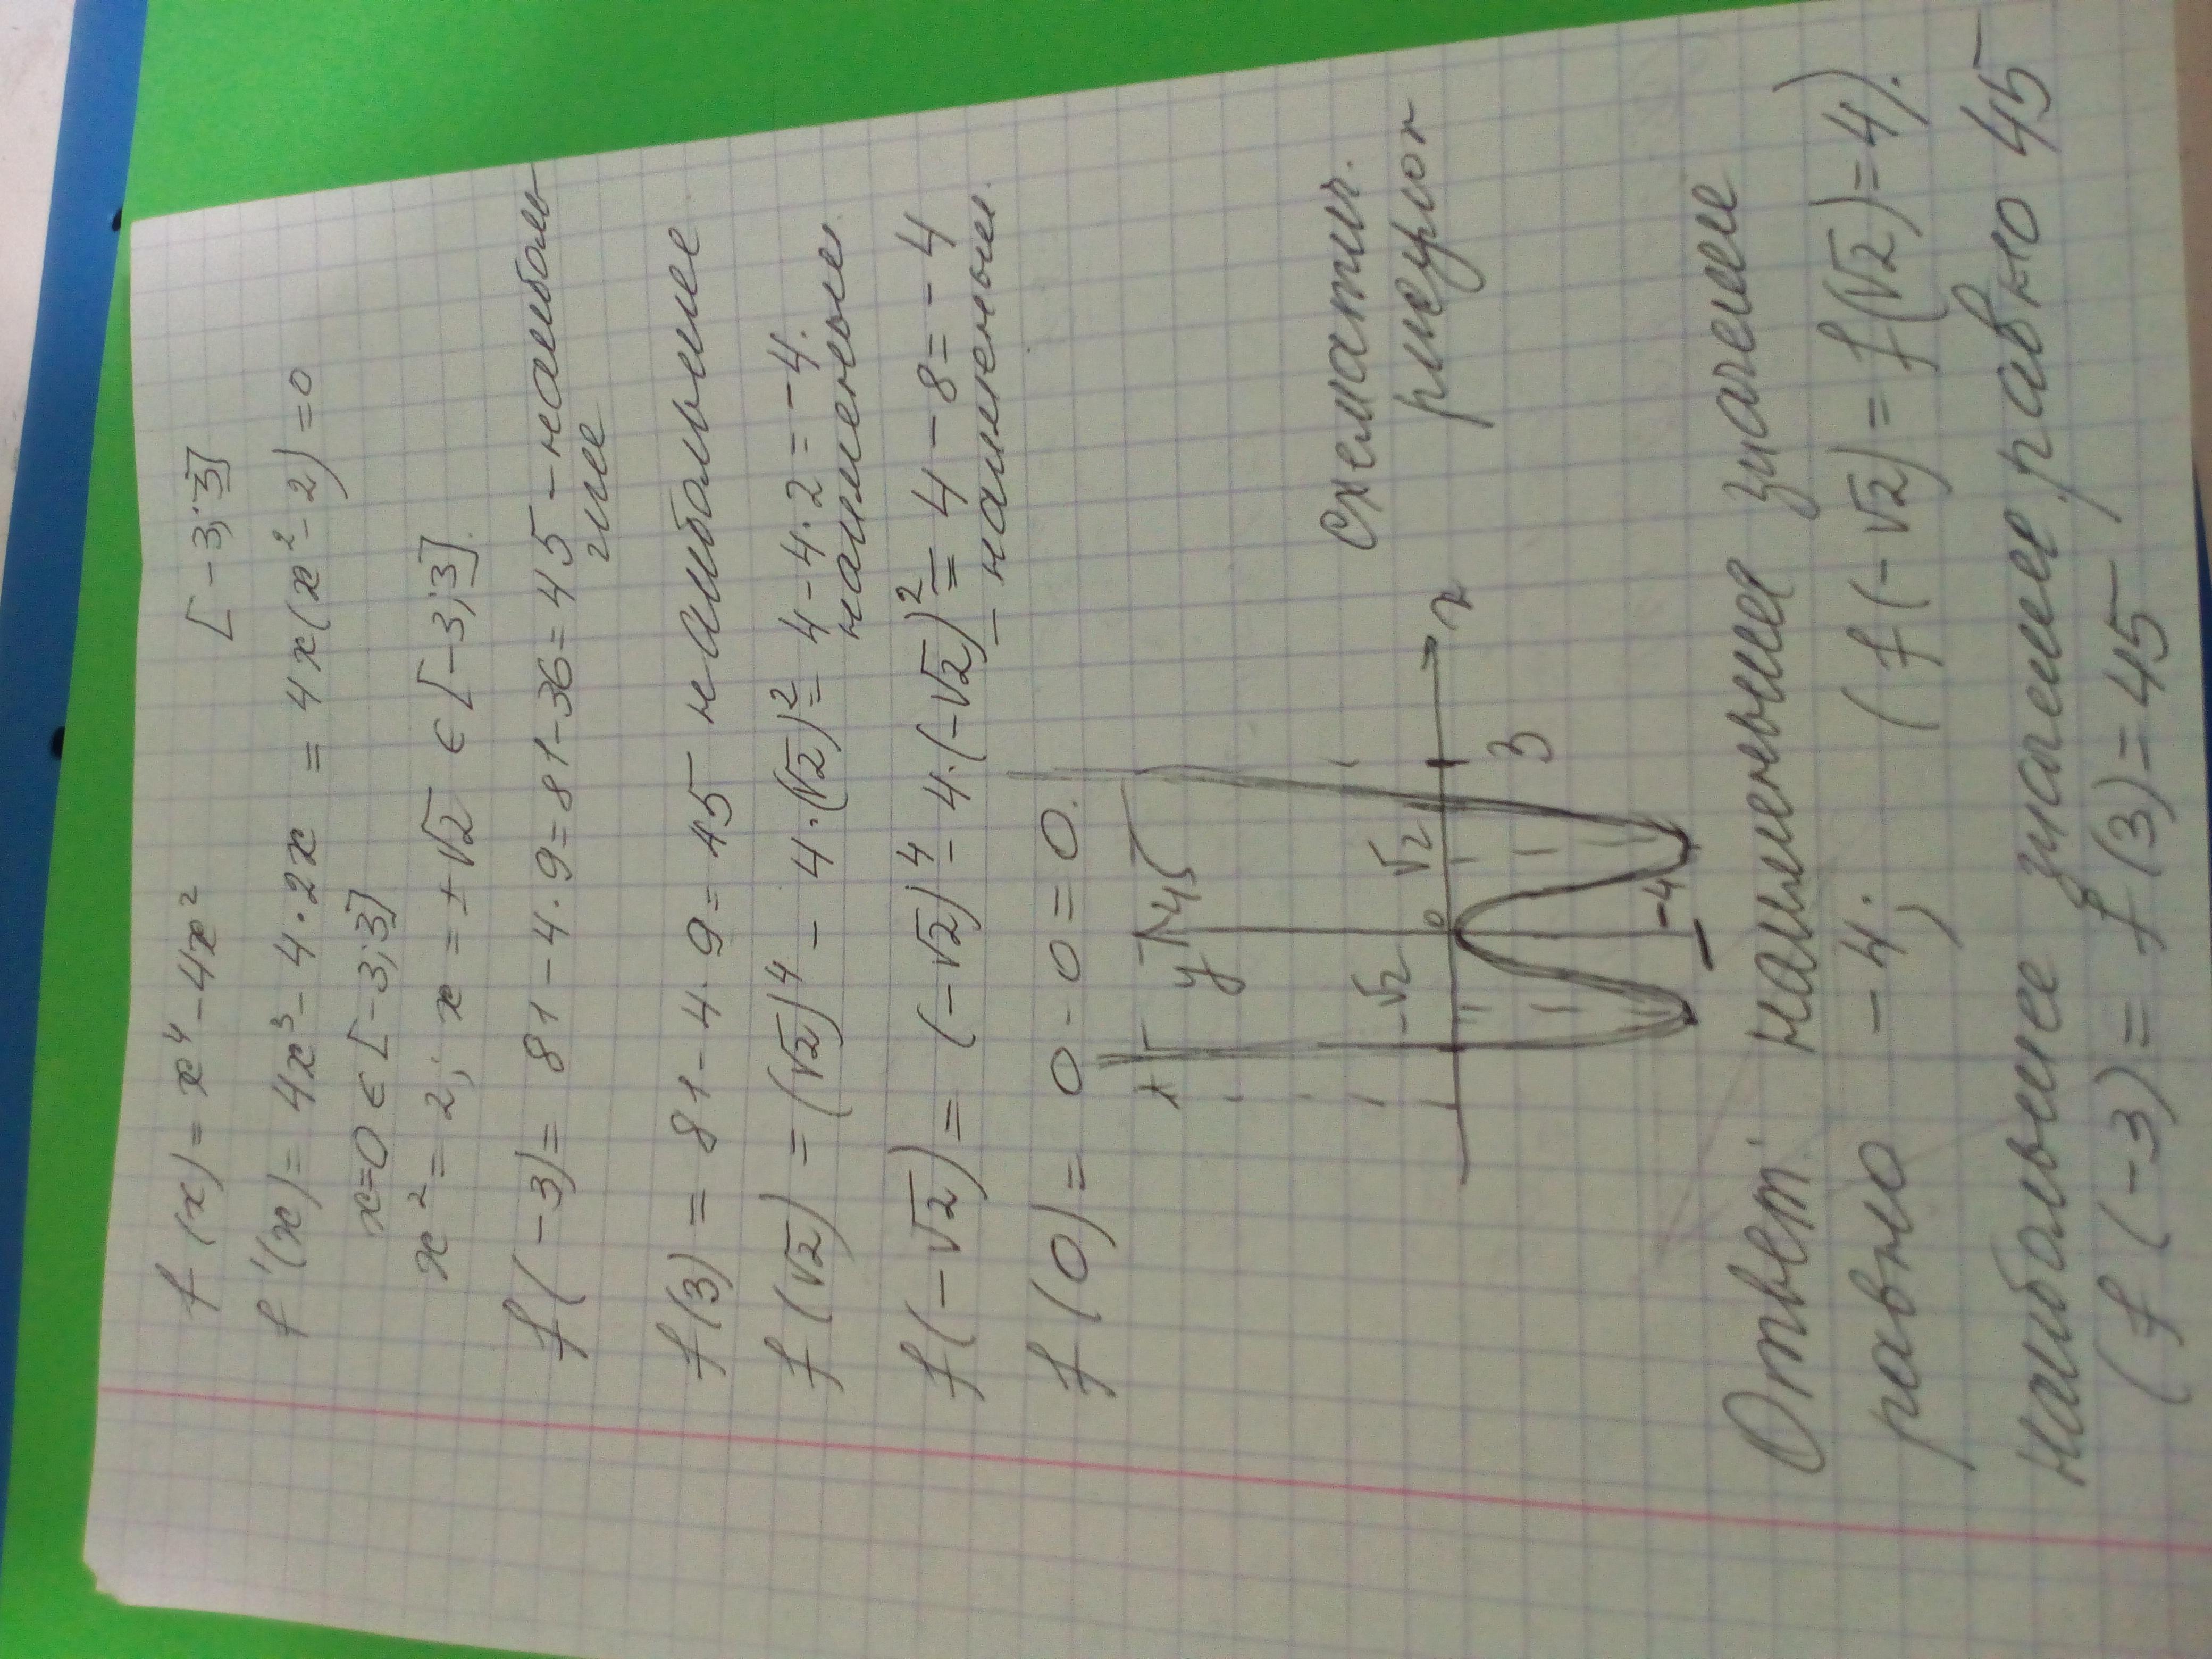 f(x) = x⁴ - 4x² [-3; 3]
f'(x) = 4x³ - 4·2x = 4x(x² - 2) = 0
x=0 ∈ [-3; 3]
x² = 2; x = ±√2 ∈ [-3; 3].
f(-3) = 81 - 4·9 = 81 - 36 = 45 - наиболь
шее
f(3) = 81 - 4·9 = 45 наибольшее
f(√2) = (√2)⁴ - 4·(√2)² = 4 - 4·2 = -4.
наименьш
f(-√2) = (-√2)⁴ - 4·(-√2)² = 4 - 8 = -4
- наименьш.
f(0) = 0 - 0 = 0.
y 45
-√2 0 √2 3 x
-4
схематич.
рисунок
Ответ: наименьшее значение
равно -4; (f(-√2) = f(√2) = 4).
наибольшее значение равно 45
(f(-3) = f(3) = 45